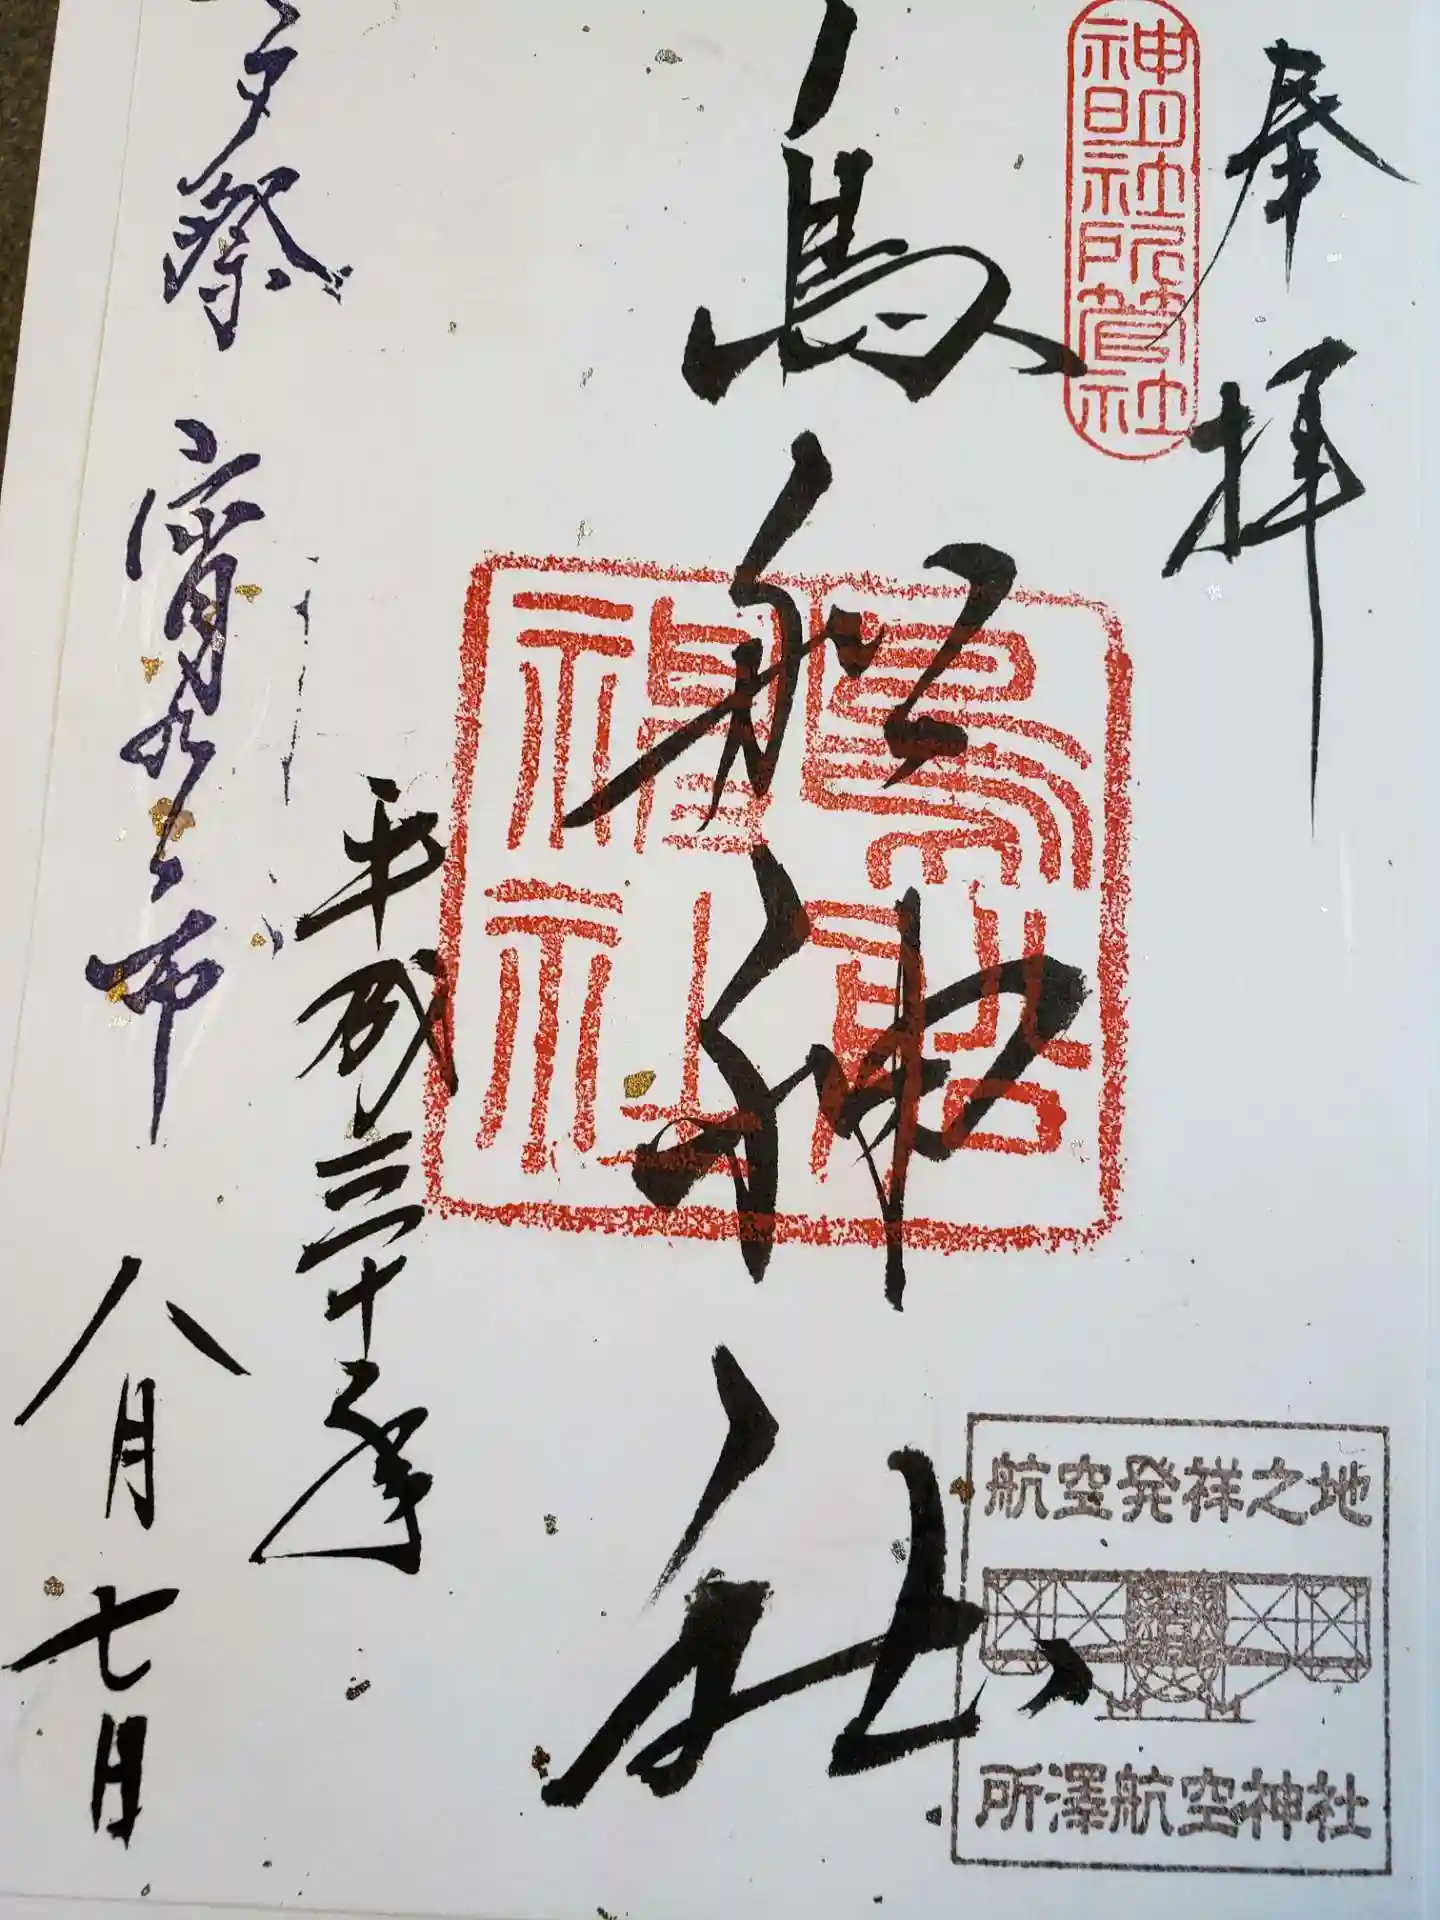 奉拝
神明社所管社
鳥船神社
鳥船
神社
航空発祥之地
所澤航空神社
平成三十年
八月七日
夕祭 宵乃市